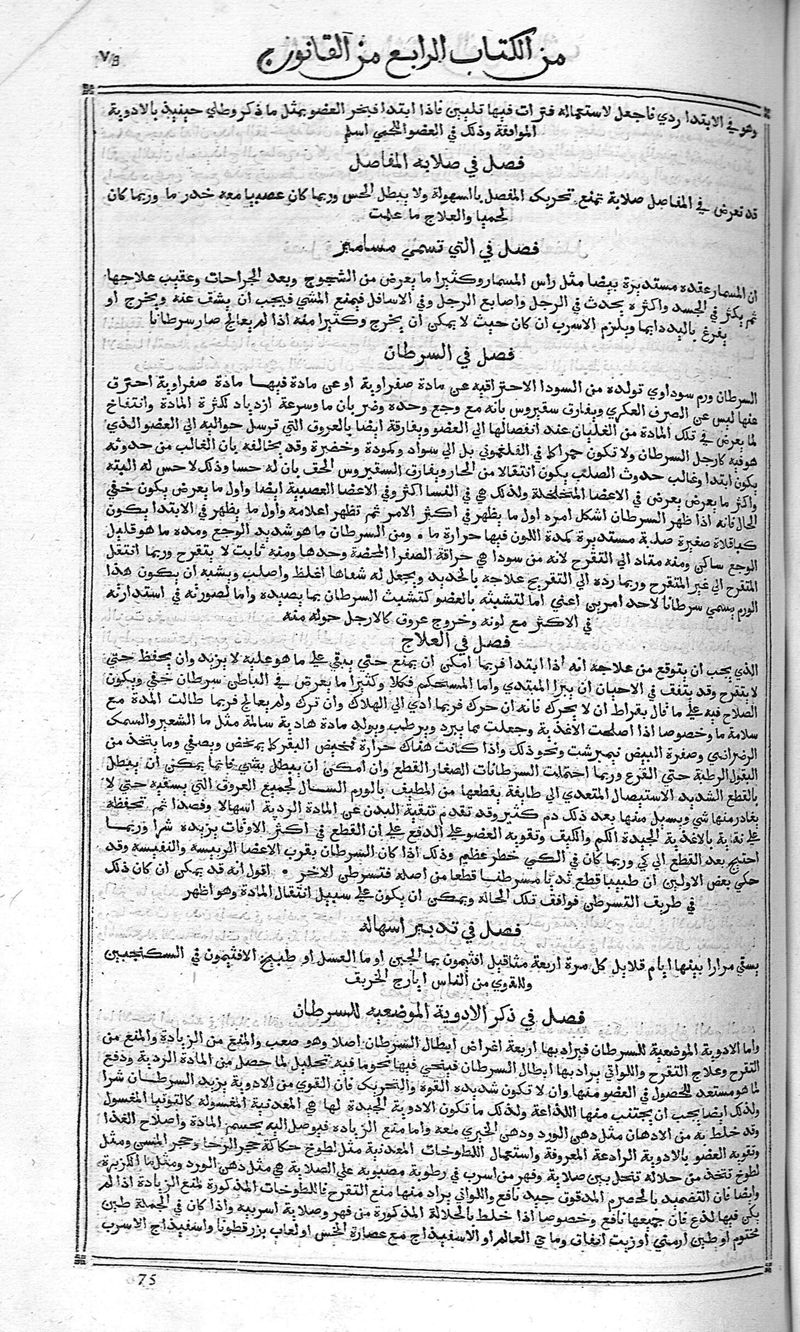 ٧٥
من الكتاب الرابع من القانون ج
وهو في الابتدا ردي فاجعل لاستعماله فترات فيها تليين فاذا ابتدا فبخر العضو بمثل ما ذكر وطلي حينيذ بالادوية
الموافقة وذلك في العضو اللحمي اسلم
فصل في صلابه المفاصل
قد تعرض في المفاصل صلابة تمنع تحريك المفصل بالسهولة ولا يبطل الحس وربما كان عصبيا معه خدر ما وربما كان
لحميا والعلاج ما علمت
فصل في التي تسمي مسامير
ان المسمار عقده مستديرة بيضا مثل راس المسمار وكثيرا ما يعرض من الشجوج وبعد الجراحات وعقيب علاجها
ثم يكثر في الجسد واكثره يحدث في الرجل واصابع الرجل وفي الاسافل فيمنع المشي فيجب ان يشق عنه ويخرج او
يفرغ باليد دايما ويلزم الاسرب ان كان حيث لا يمكن ان يخرج وكثيرا منه اذا لم يعالج صار سرطانا
فصل في السرطان
السرطان ورم سوداوي تولده من السودا الاحتراقيه عن مادة صفراوية او عن مادة فيها مادة صفراوية احترق
عنها ليس عن الصرف العكري ويفارق سقيروس بانه مع وجع وحده وضربان ما وسرعة ازدياد لكثرة المادة وانتفاخ
لما يعرض في تلك المادة من الغليان عند انفصالها الي العضو ويفارقة ايضا بالعروق التي ترسل حواليه الي العضو الذي
هو فيه كارجل السرطان ولا تكون حمرا كما في الفلغموني بل الي سواد وكمودة وخضرة وقد يخالفه بان الغالب من حدوثه
يكون ابتدا وغالب حدوث الصلب يكون انتقالا من الحار ويفارق السقيروس الحق بان له حسا وذلك لا حس له البته
واكثر ما يعرض يعرض في الاعضا المتخلخلة ولذلك هي في النسا اكثر وفي الاعضا العصبية ايضا واول ما يعرض يكون خفي
الحال فانه اذا ظهر السرطان اشكل امره اول ما يظهر في اكثر الامر ثم تظهر اعلامه واول ما يظهر في الابتدا يكون
كباقلاة صغيرة صلبة مستديرة كمدة اللون فيها حرارة ما ومن السرطان ما هو شديد الوجع ومده ما هو قليل
الوجع ساكن ومنه متاد الي التقرح لانه من سودا هي حراقة الصفرا المحضة وحدها ومنه ثابت لا يتقرح وربما انتقل
المتقرح الي غير المتقرح وربما رده الي التقريح علاجه بالحديد ويجعل له شفاها اغلظ واصلب ويشبه ان يكون هذا
الورم يسمي سرطانا لاحد امرين اعني اما لتشبثه بالعضو كتشبث السرطان بما يصيده واما لصورته في استدارته
في الاكثر مع لونه وخروج عروق كالارجل حوله منه
فصل في العلاج
الذي يجب ان يتوقع من علاجه انه اذا ابتدا فربما امكن ان يمنع حتي يبقي علي ما هو عليه لا يزيد وان يحفظ حتي
لا يتقرح وقد يتفق في الاحيان ان يبرا المبتدي واما المستحكم فكلا وكثيرا ما يعرض في الباطن سرطان خفي ويكون
الصلاح فيه علي ما قال بقراط ان لا يحرك فانه ان حرك فربما ادي الي الهلاك وان ترك ولم يعالج فربما طالت المدة مع
سلامة ما وخصوصا اذا اصلحت الاغذية وجعلت مما يبرد ويرطب ويولد مادة هادية سالمة مثل ما الشعير والسمك
الرضراضي وصفرة البيض نيمبرشت ونحو ذلك واذا كانت هناك حرارة فمخيض البقر كما يمخض ويصفي وما يتخذ من
البقول الرطبة حتي القرع وربما احتملت السرطانات الصغار القطع وان امكن ان يبطل بشي فانما يمكن ان يبطل
بالقطع الشديد الاستيصال المتعدي الي طايفة يقطعها من المطيف بالورم السال لجميع العروق التي يسقيه حتي لا
يغادر منها شي ويسيل منها بعد ذلك دم كثير وقد تقدم تنقية البدن عن المادة الردية اسهالا وفصدا ثم تحفظه
علي نقاية بالاغذية الجيدة الكم والكيف وتقوية العضو علي الدفع علي ان القطع في اكثر الاوقات يزيده شرا وربما
احتيج بعد القطع الي كي وربما كان في الكي خطر عظيم وذلك اذا كان السرطان بقرب الاعضا الرييسه والنفيسه وقد
حكي بعض الاولين ان طبيبا قطع ثديا مسرطنا قطعا من اصله فتسرطن الاخر اقول انه قد يمكن ان كان ذلك
في طريق التسرطن فوافقت تلك الحاله ويمكن ان يكون علي سبيل انتقال المادة وهو اظهر
فصل في تدبير اسهاله
يسقي مرارا بينها ايام قلايل كل مرة اربعة مثاقيل افثيمون بما الجبن او ما العسل او طبيخ الافثيمون في السكنجبين
وللقوي من الناس ايارج الخريق
فصل في ذكر الادوية الموضعيه للسرطان
واما الادوية الموضعية للسرطان فيراد بها اربعة اغراض ابطال السرطان اصلا وهو صعب والمنع من الزيادة والمنع من
التقرح وعلاج التقرح واللواتي يراد بها ابطال السرطان فينحي فيها نحو ما فيه تحليل لما حصل من المادة الردية ودفع
لما هو مستعد للحصول في العضو منها وان لا تكون شديده القوة والتحريك فان القوي من الادوية يزيد السرطان شرا
ولذلك ايضا يجب ان يجتنب منها اللذاعة ولذلك ما تكون الادوية الجيدة لها هي المعدنية المغسوله كالتوتيا المغسول
وقد خلط به من الادهان مثل دهن الورد ودهن الخيري معه واما منع الزيادة فيوصل اليه بحسم المادة واصلاح الغذا
وتقوية العضو بالادوية الرادعة المعروفة واستعمال اللطوخات المعدنية مثل لطوخ حكاكة حجر الرحا وحجر المسن ومثل
لطوخ تتخذ من حلاله تنحل بين صلاية وفهر من اسرب في رطوبة مصبوبه علي الصلاية هي مثل دهن الورد ومثل ما الكزبرة
وايضا فان التضميد بالحصرم المدقوق جيد نافع واللواتي يراد منها منع التقرح فاللطوخات المذكورة لمنع الزيادة اذا لم
يكن فيها لذع فان جميعها نافع وخصوصا اذا خلط بالحلالة المذكورة من فهر وصلاية اسربية واذا كان في الجملة طين
مختوم او طين ارمني او زيت انفاق وما حي العالم او الاسفيذاج مع عصارة الخس او لعاب بزرقطونا واسفيذاج الاسرب
75